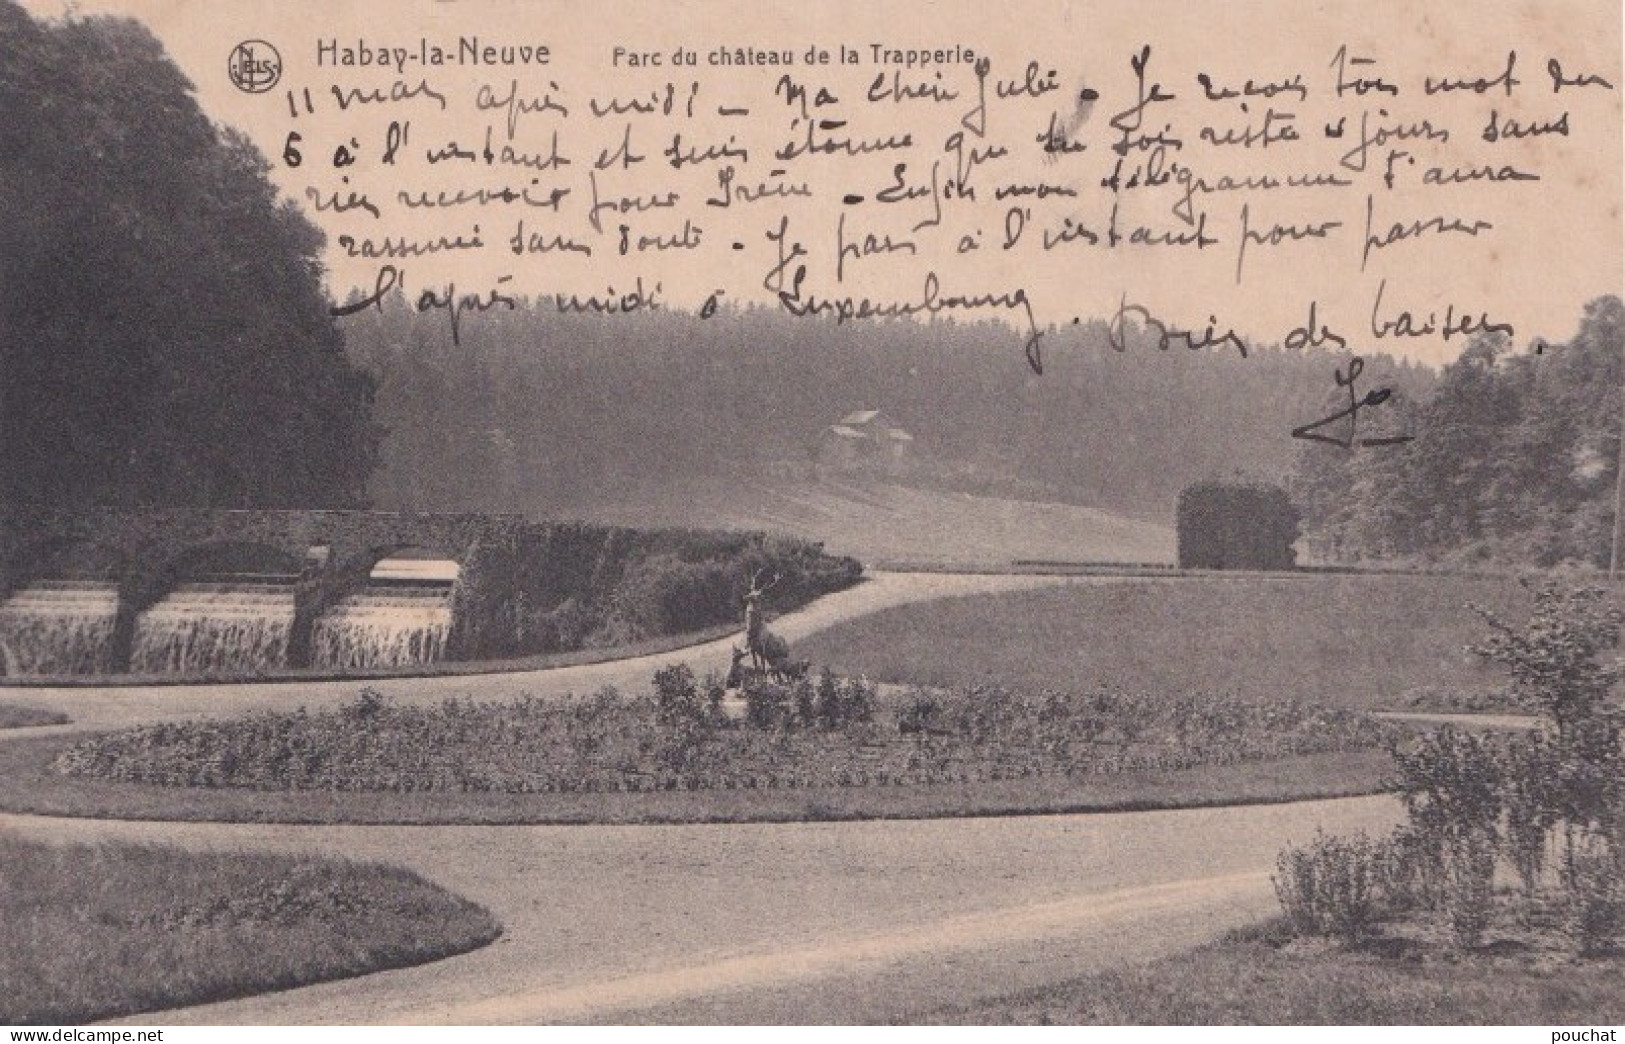 NELS
Habay-la-Neuve Parc du château de la Trapperie
11 mars après midi - Ma chérie Julie. Je reçois ton mot du
6 à l'instant et suis étonné que tu sois resté jours sans
rien recevoir pour Irène. Enfin mon télégramme t'aura
rassurée sans doute. Je pars à l'instant pour passer
l'après midi à Luxembourg. Bien des baisers.
Jo
pouchat